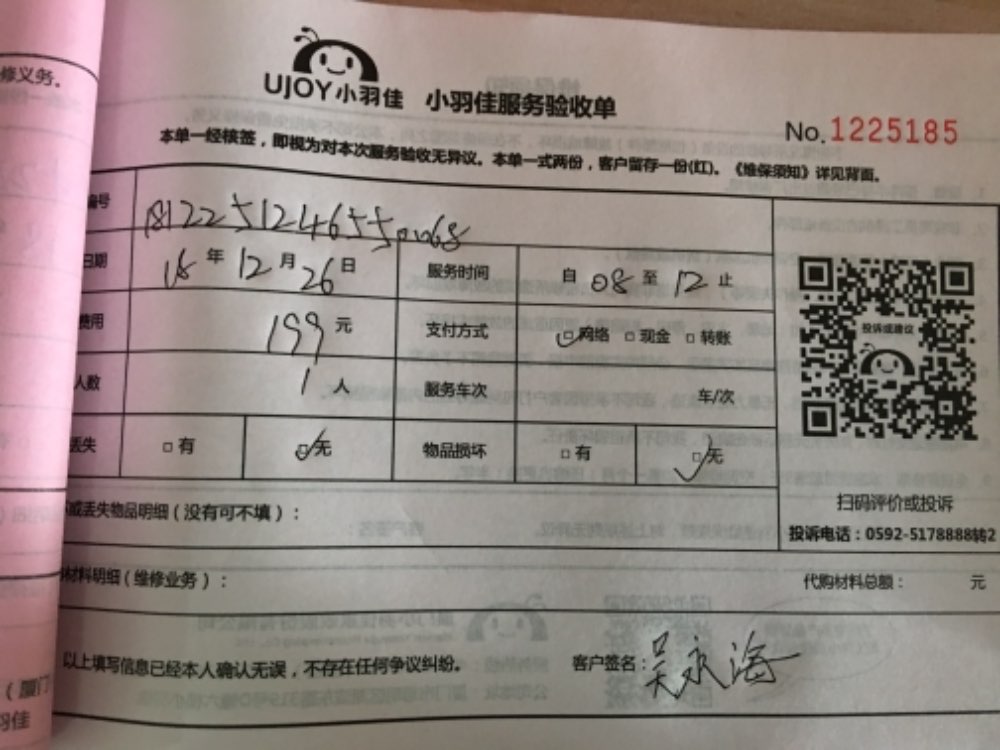 修义务。
UJOY小羽佳 小羽佳服务验收单
No.1225185
本单一经核签，即视为对本次服务验收无异议。本单一式两份，客户留存一份(红)。《维保须知》详见背面。
编号 18122512465550068
日期 18年12月26日 服务时间 自08至12止
费用 199元 支付方式 □网络 □现金 □转账
人数 1人 服务车次 车/次
丢失 □有 □无 物品损坏 □有 □无
投诉或建议
扫码评价或投诉
投诉电话：0592-5178888转2
或丢失物品明细（没有可不填）：
材料明细（维修业务）： 代购材料总额： 元
以上填写信息已经本人确认无误，不存在任何争议纠纷。 客户签名：吴永海
（厦门
羽佳